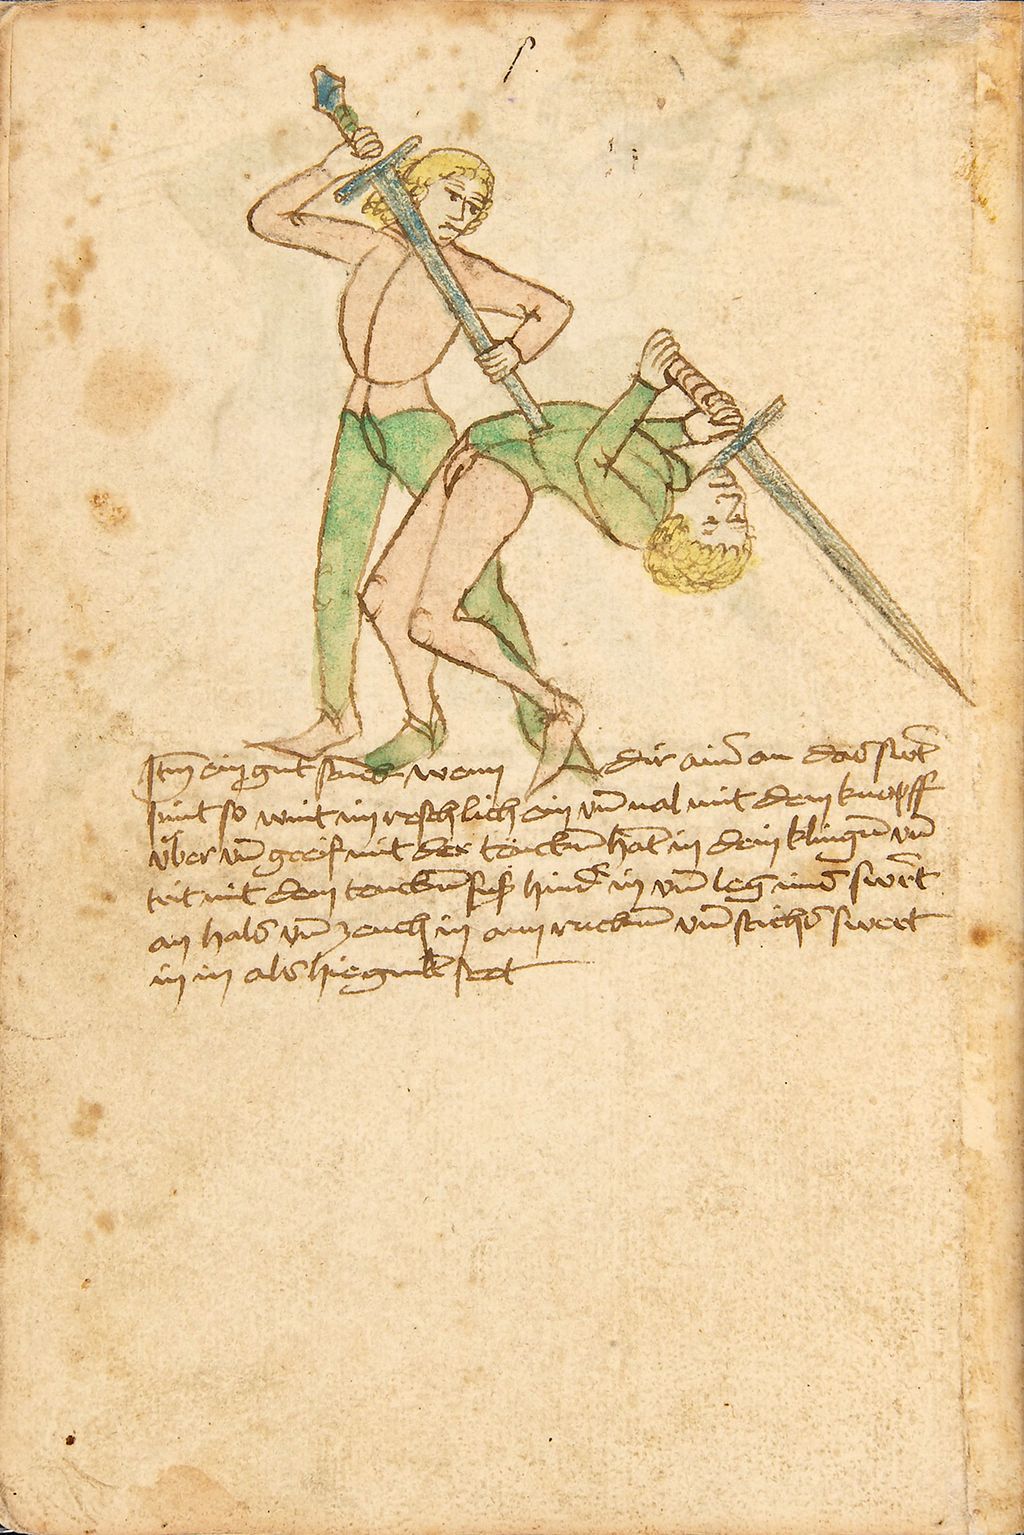 Itm ein gut stuck wenn dir ainer an das swert
pint so wint im reschlich ein vnd val mit dem knopff
vber vnd greif mit der tencken hant in dein klingen vnd
trit mit dem tencken fus hinder in vnd leg ims swert
an hals vnd zeuch in am rucken vnd stichs swert
in in als hie gemalt stet